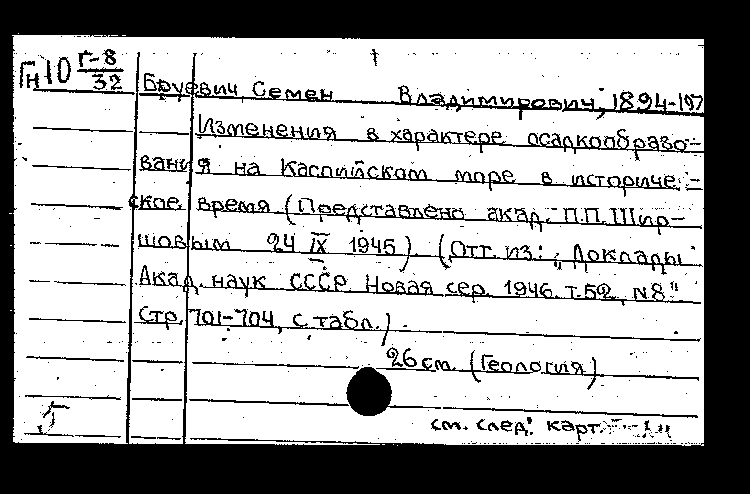 Гн10 Г-8/32
Бруевич, Семен Владимирович, 1894-197
Изменения в характере осадкообразо-
вания на Каспийском море в историче-
ское время (Представлено акад. П.П. Шир-
шовым 24 IX 1945) (Отт. из: „Доклады
Акад. наук СССР. Новая сер. 1946. т. 52, N 8"
Стр. 701-704, с табл.)
26 см. (Геология)
см. след. карт.